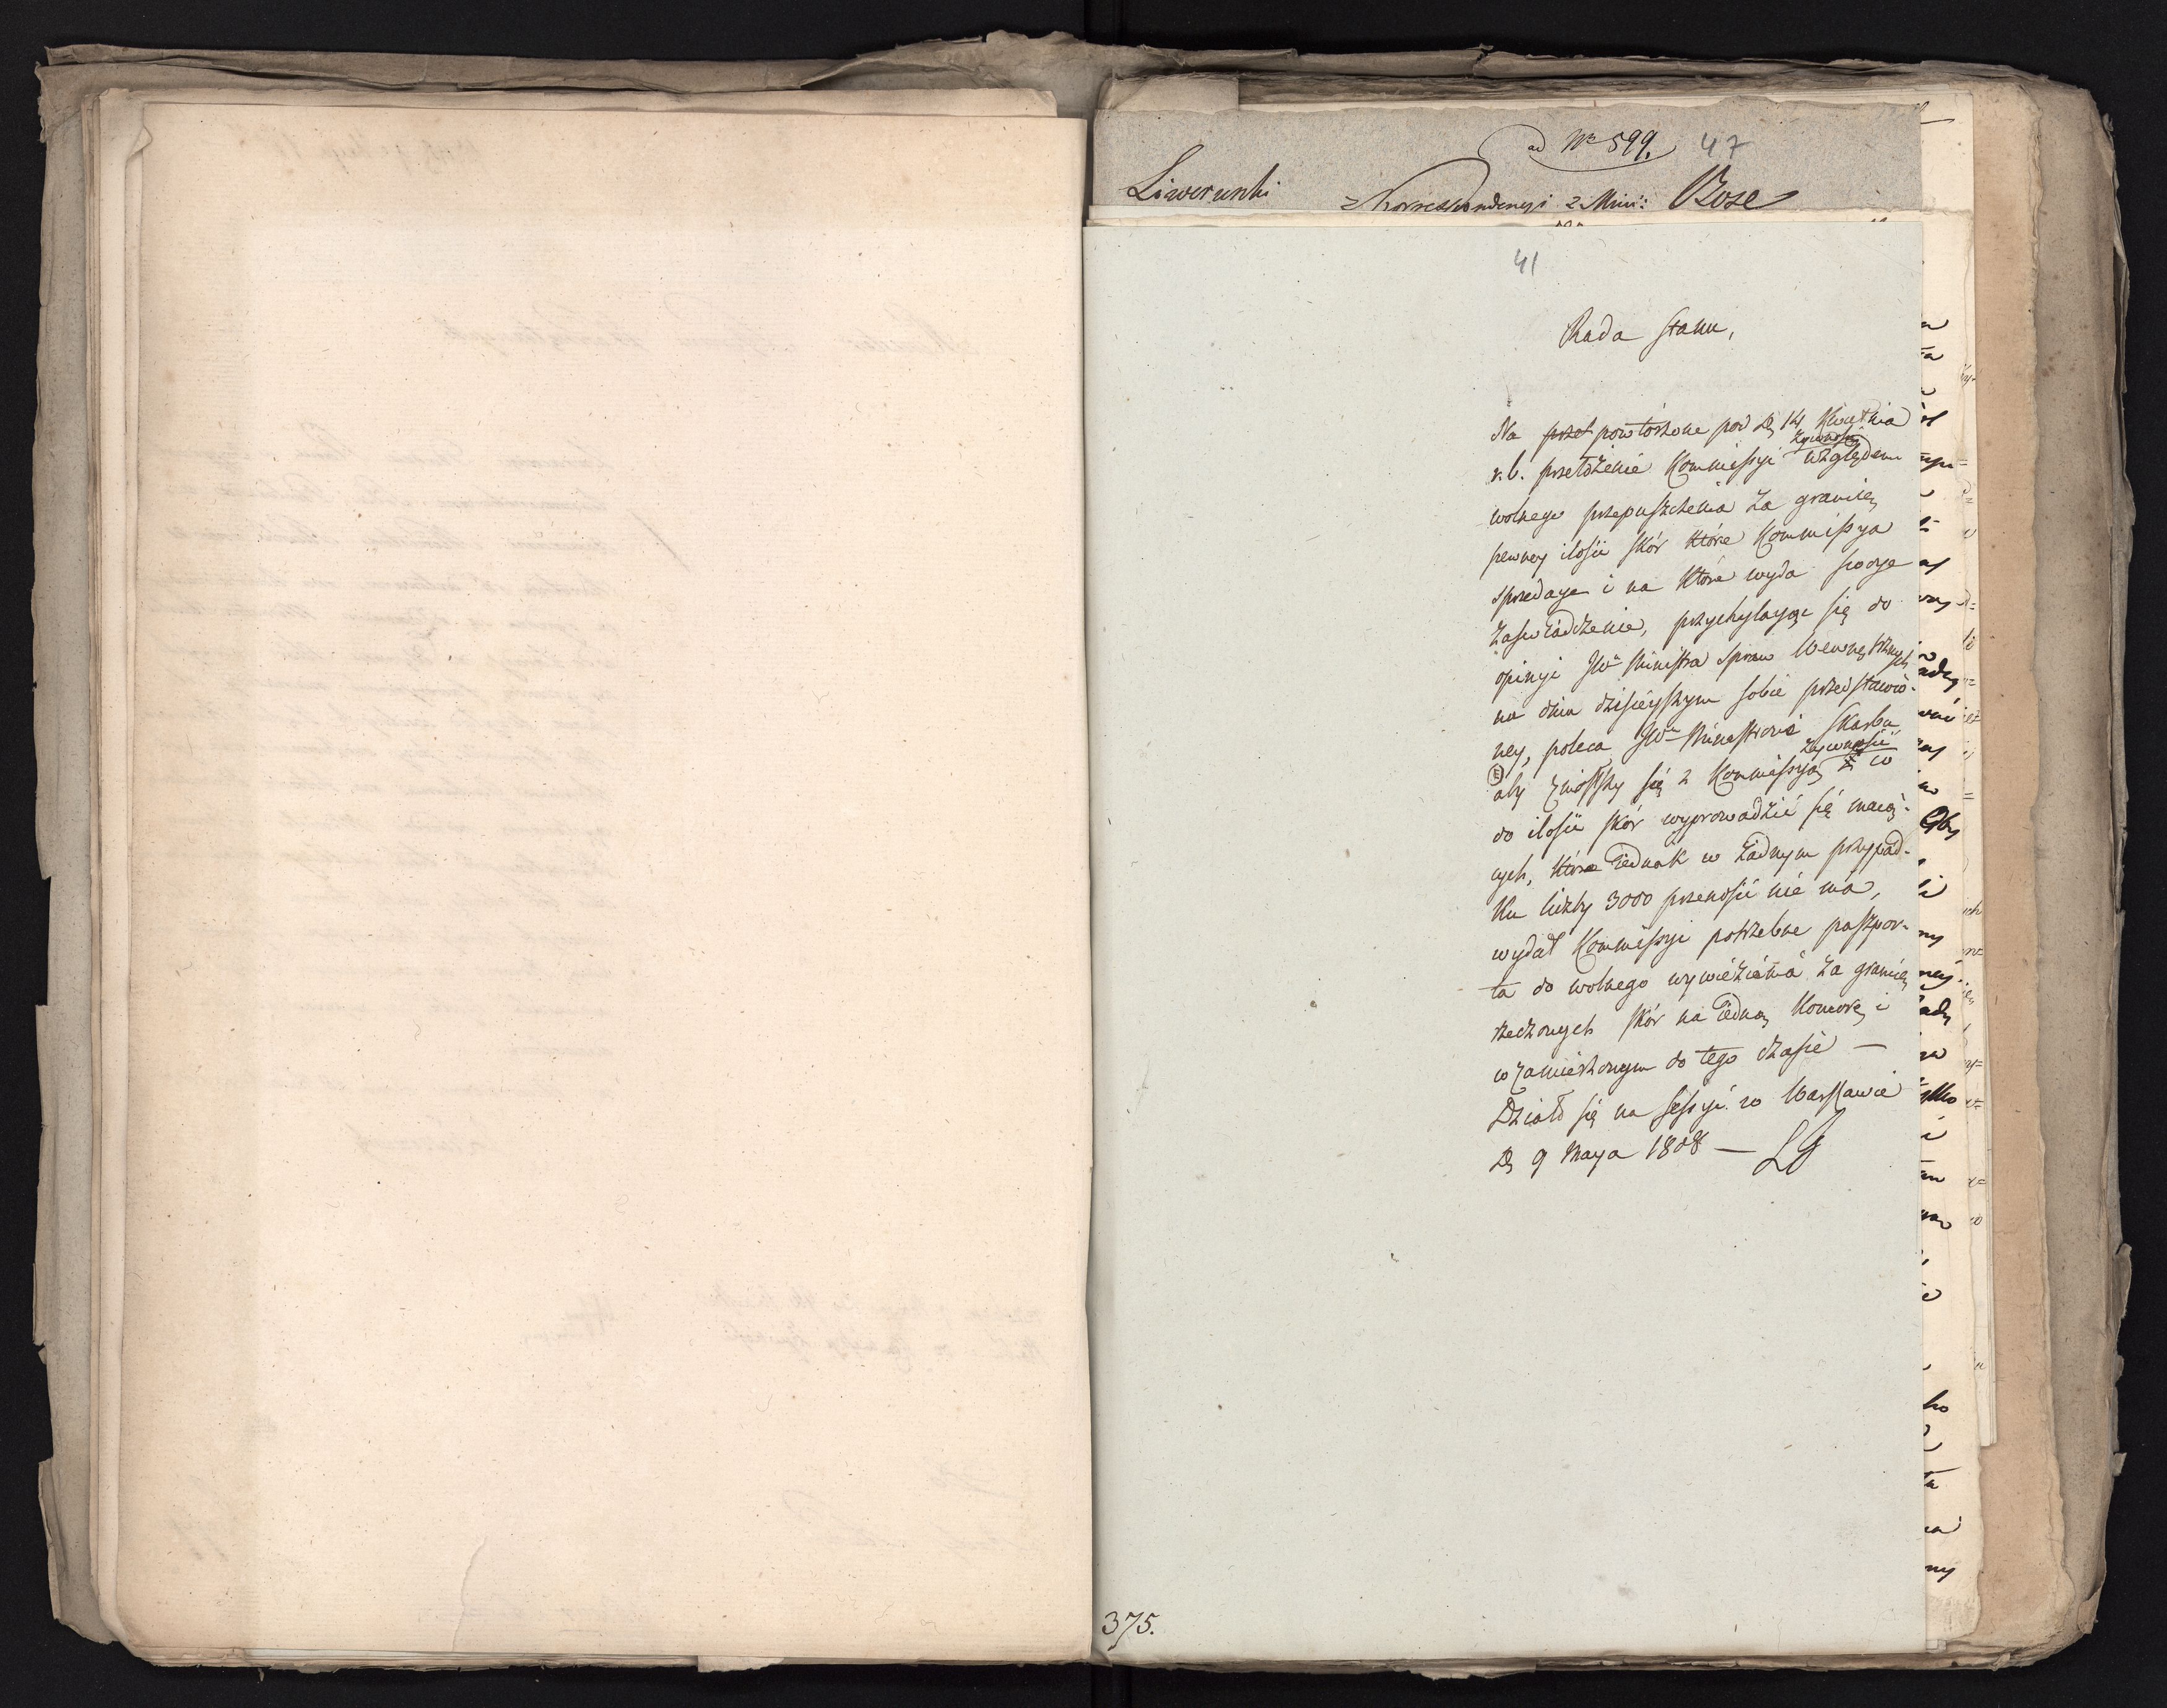 ad Nro 599. 47
Liwerunki Korrespondencyi z Mini: Bose
41
Rada Stanu,
Na przeł powtórzone pod D. 14 Kwietnia
r. b. przełożenie Kommissyi żywności względem
wolnego przepuszczenia za granicę
pewney ilości skór które Kommissya
sprzedaje i na które wyda swoje
zaświadczenie, przychylając się do
opinyi JWo Ministra Spraw Wewnętrznych
na dniu dzisieyszym sobie przedstawio-
ney, poleca JWu Ministrowi Skarbu
aby zniósłszy się z Kommissyą żywności co
do ilości skór wyprowadzić się mają-
cych, które iednak w żadnym przypad-
ku liczby 3000 przenosić nie ma,
wydał Kommissyi potrzebne paszpor-
ta do wolnego wywiezienia za granicę
rzeczonych skór na iedną komorę i
w zamierzonym do tego czasie —
Działo się na Sessyi w Warszawie
D. 9 Maja 1808 — LG
375.